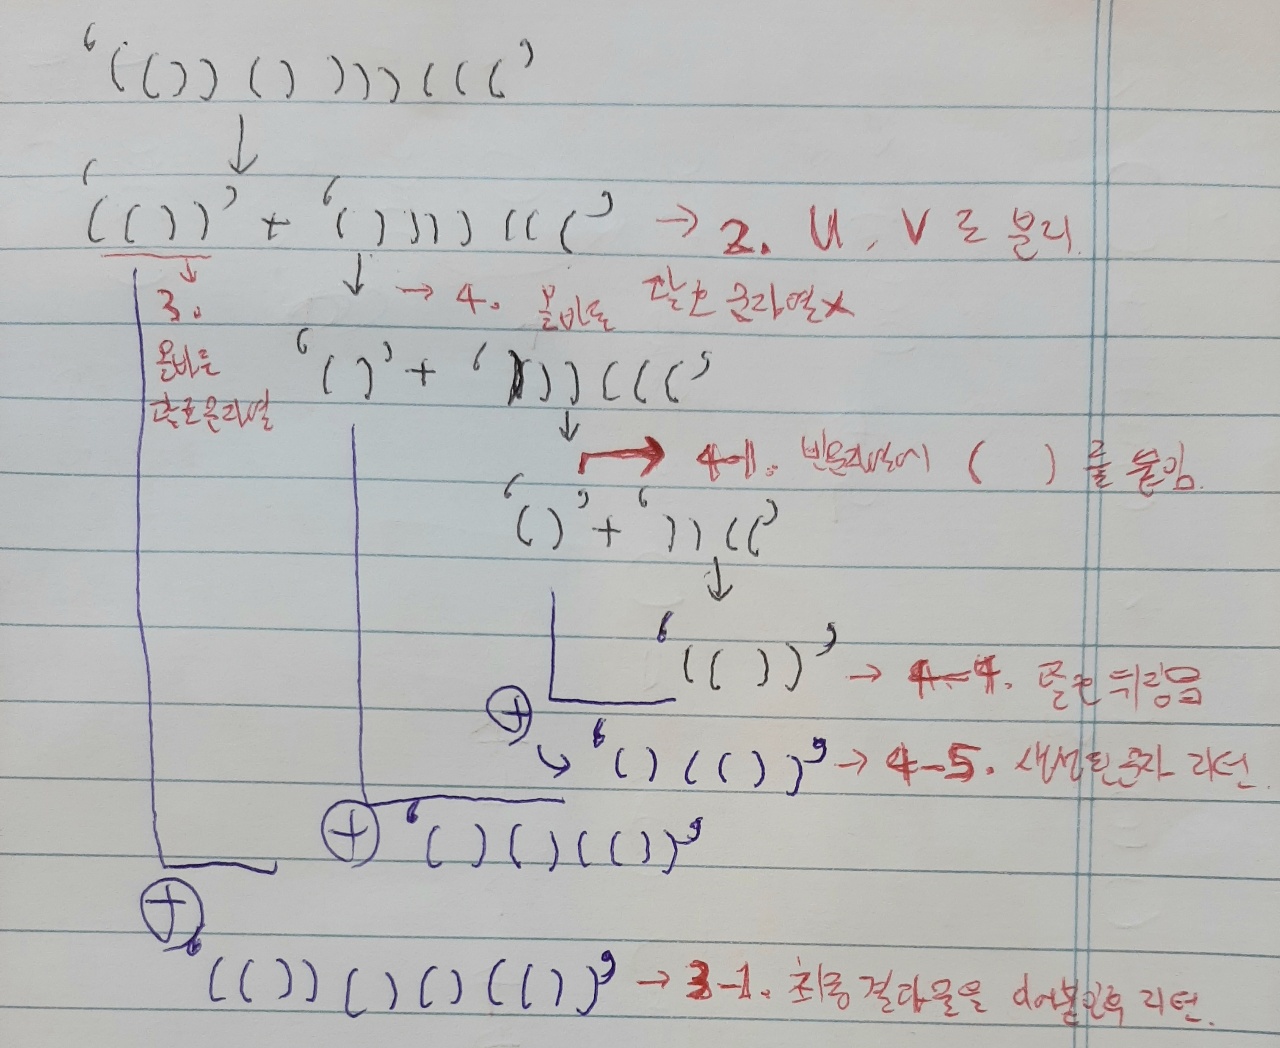 ‘(())())))(((’
‘(())’ + ‘())))(((’ → 2. U, V로 분리
→ 4. 올바른 괄호 문자열x
3.
올바른
괄호문자열
‘()’ + ‘)))(((’
→ 4-1. 빈문자열에 ( ) 를 붙임.
‘()’ + ‘))((’
‘(())’ → 4-4. 괄호 뒤집음
‘()(())’ → 4-5. 생성된문자 리턴.
⊕ ‘()()(())’
⊕
‘(())()()(())’ → 3-1. 최종결과물을 이어붙인후 리턴.